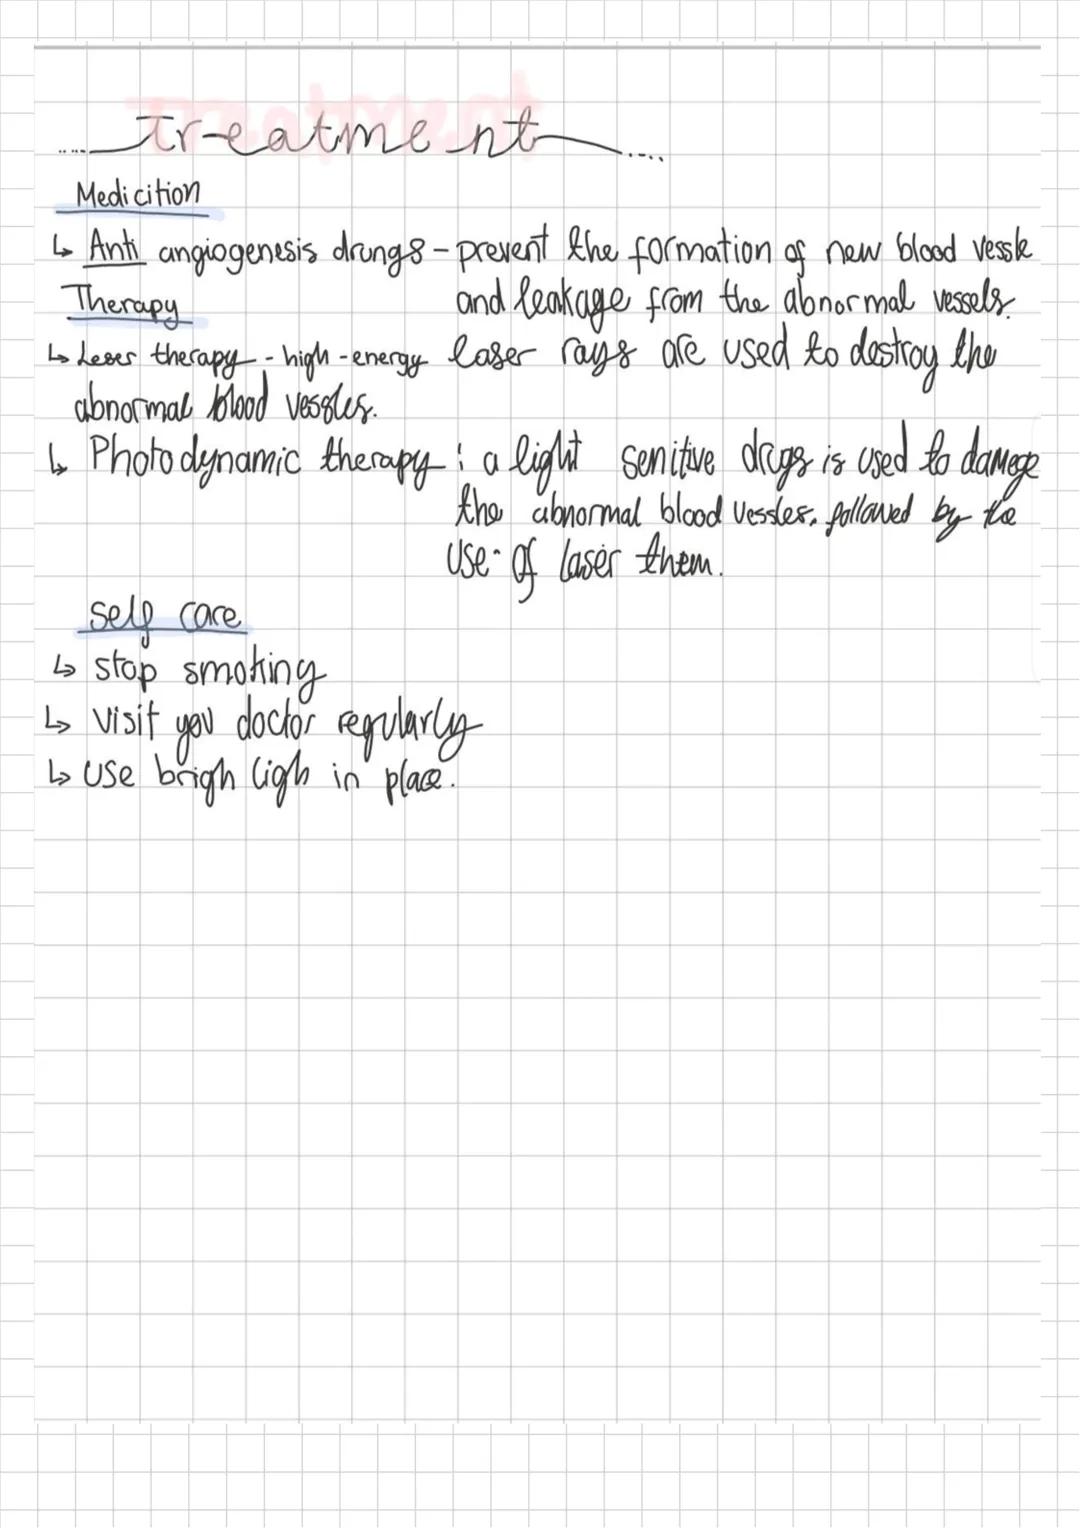 Treatment
Medicition
↳ Anti angiogenesis drungs - prevent the formation of new blood vessle
and leakage from the abnormal vessels.
Therapy
↳ Leser therapy - high-energy laser rays are used to destroy the
abnormal blood vessles.
↳ Photodynamic therapy : a light senitive drugs is used to damege
the abnormal blood vessles, followed by the
use of laser them.
self care
↳ stop smoking
↳ visit you doctor regularly
↳ use brigh ligh in place.